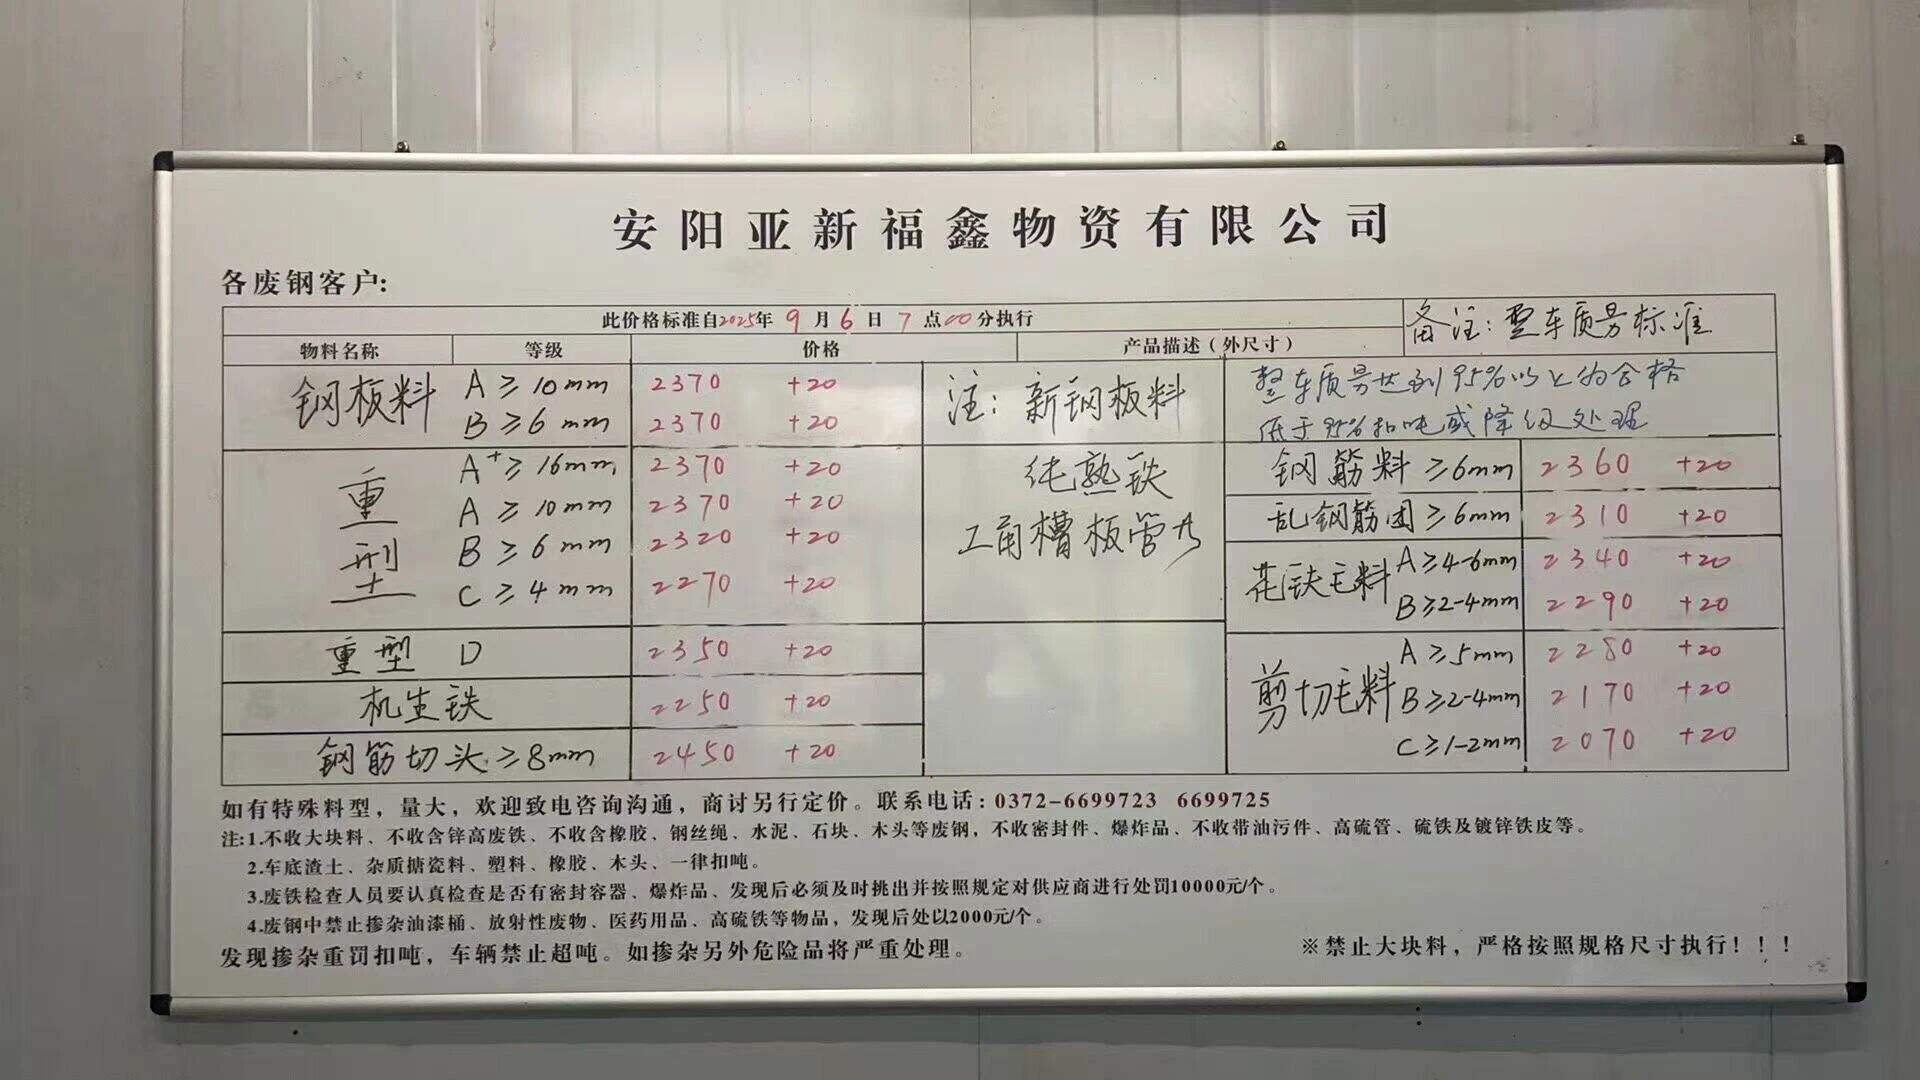 安阳亚新福鑫物资有限公司
各废钢客户:
此价格标准自2025年 9 月 6 日 7 点00分执行
备注: 整车质量标准
物料名称 等级 价格 产品描述(外尺寸)
整车质量达到95%以上为合格
低于95%扣吨或降级处理
钢板料 A ≥ 10mm 2370 +20
B ≥ 6mm 2370 +20
注: 新钢板料
重型 A+ ≥ 16mm 2370 +20
A ≥ 10mm 2370 +20
B ≥ 6mm 2320 +20
C ≥ 4mm 2270 +20
纯熟铁
工角槽板管
重型 D 2350 +20
机生铁 2250 +20
钢筋切头 ≥8mm 2450 +20
钢筋料 ≥6mm 2360 +20
乱钢筋团 ≥6mm 2310 +20
花铁毛料 A≥4-6mm 2340 +20
B≥2-4mm 2290 +20
剪切毛料 A ≥5mm 2280 +20
B≥2-4mm 2170 +20
C≥1-2mm 2070 +20
如有特殊料型，量大，欢迎致电咨询沟通，商讨另行定价。联系电话: 0372-6699723 6699725
注: 1.不收大块料、不收含锌高废铁、不收含橡胶、钢丝绳、水泥、石块、木头等废钢，不收密封件、爆炸品、不收带油污件、高硫管、硫铁及镀锌铁皮等。
2.车底渣土、杂质搪瓷料、塑料、橡胶、木头、一律扣吨。
3.废铁检查人员要认真检查是否有密封容器、爆炸品、发现后必须及时挑出并按照规定对供应商进行处罚10000元/个。
4.废钢中禁止掺杂油漆桶、放射性废物、医药用品、高硫铁等物品，发现后处以2000元/个。
发现掺杂重罚扣吨，车辆禁止超吨。如掺杂另外危险品将严重处理。
※禁止大块料，严格按照规格尺寸执行！！！